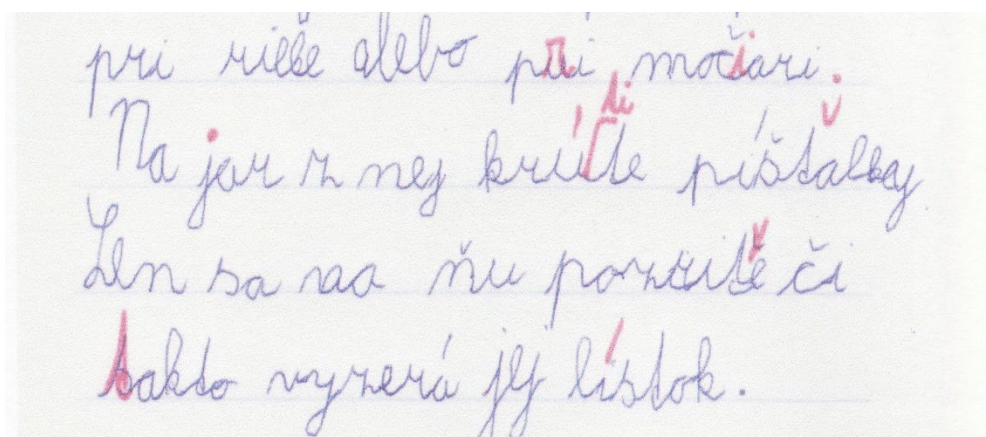 pri rieke alebo pri močiari.
Na jar z nej krútite píšťalky
Len sa na ňu pozrite či
takto vyzerá jej lístok.